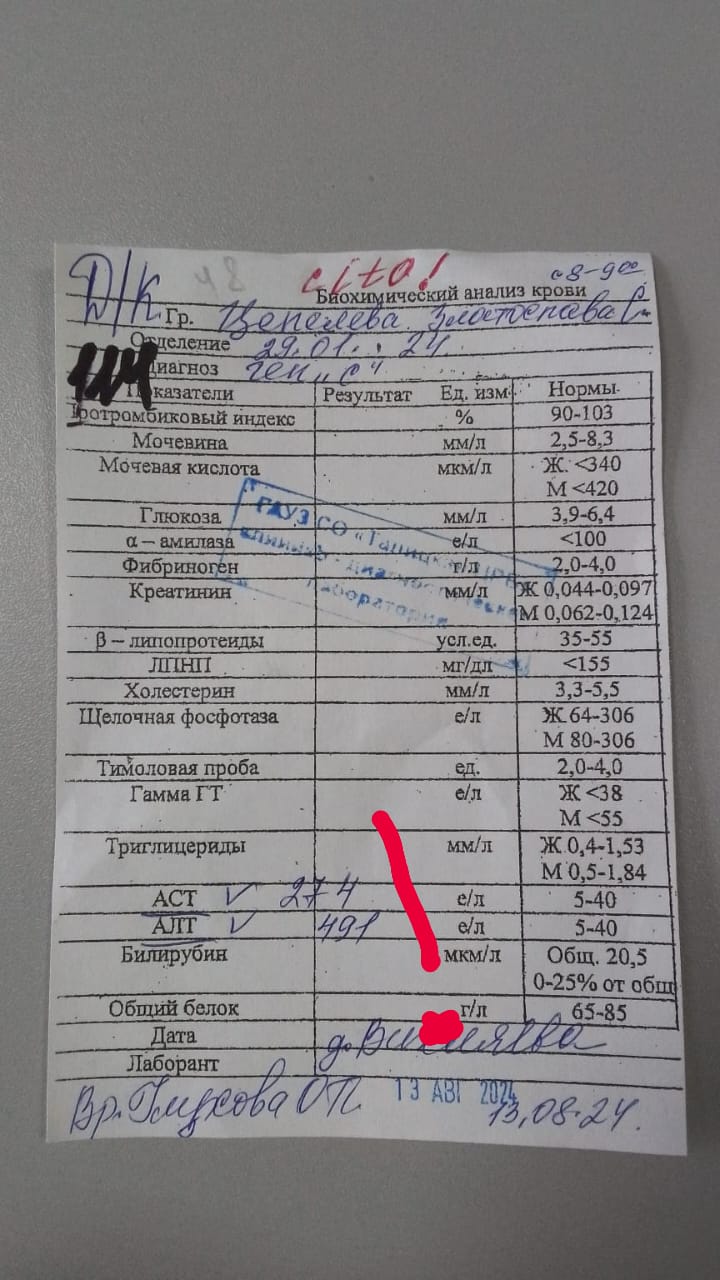 cito! с 8-9 00
Д/К Биохимический анализ крови
Гр. Цепелева Злат С.
Отделение 29.01. 24
Диагноз ген „с“
Показатели Результат Ед. изм Нормы
Протромбиковый индекс % 90-103
Мочевина мм/л 2,5-8,3
Мочевая кислота мкм/л Ж. <340
М <420
ГАУЗ СО «Талицкая ЦРБ»
клинико - диагностическая
лаборатория
Глюкоза мм/л 3,9-6,4
α – амилаза е/л <100
Фибриноген г/л 2,0-4,0
Креатинин мм/л Ж 0,044-0,097
М 0,062-0,124
β – липопротеиды усл.ед. 35-55
ЛПНП мг/дл <155
Холестерин мм/л 3,3-5,5
Щелочная фосфотаза е/л Ж 64-306
М 80-306
Тимоловая проба ед. 2,0-4,0
Гамма ГТ е/л Ж <38
М <55
Триглицериды мм/л Ж 0,4-1,53
М 0,5-1,84
АСТ 274 е/л 5-40
АЛТ 491 е/л 5-40
Билирубин мкм/л Общ. 20,5
0-25% от общ
Общий белок г/л 65-85
Дата
Лаборант
Вр. Глухова О П. 13 АВГ 2024 13.08.24.